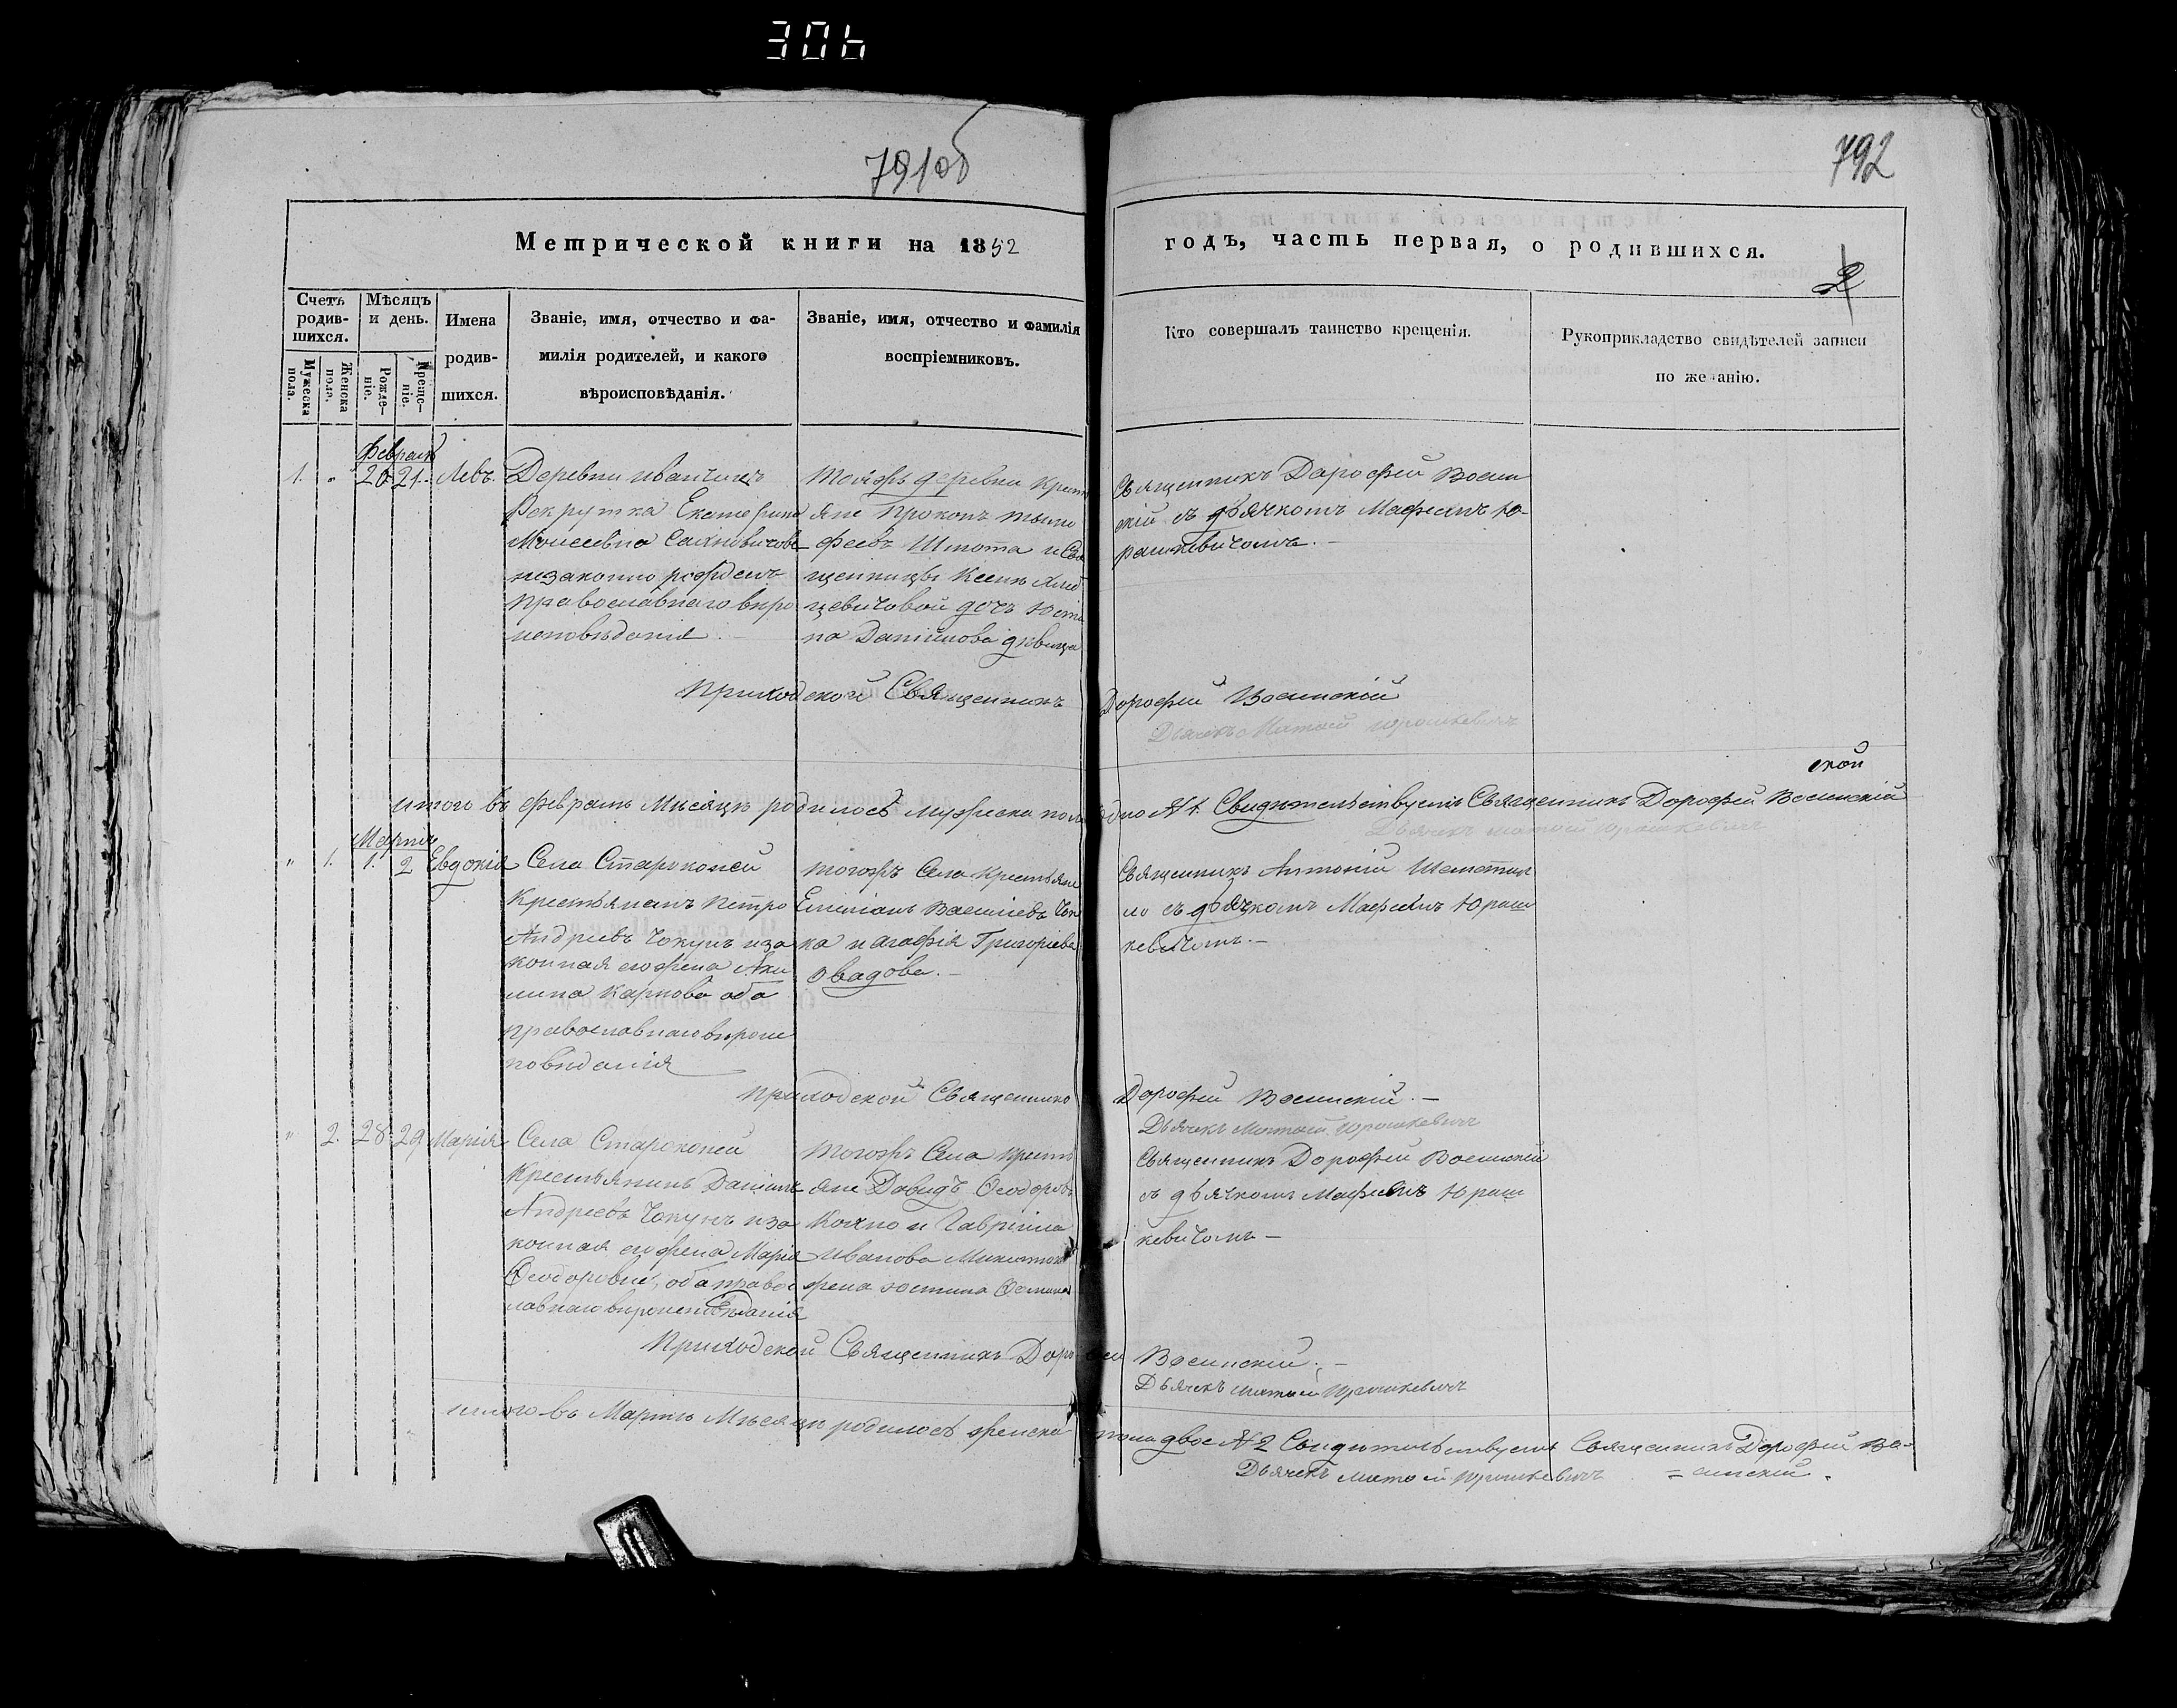 306
791об
792
Метрической книги на 1852
годъ, часть первая, о родившихся.
2
Счетъ родив-шихся.
Мужеска пола.
Женска пола.
Мѣсяцъ и день.
Рожде-ніе.
Креще-ніе.
Имена
родив-
шихся.
Званіе, имя, отчество и фа-
милія родителей, и какого
вѣроисповѣданія.
Званіе, имя, отчество и фамилія
воспріемниковъ.
Кто совершалъ таинство крещенія.
Рукоприкладство свидѣтелей записи
по желанію.
Февраль
1. " 20 21. Левъ.
Деревни
Рекрутка Екатерина
Моисеевна
незаконно рожден
православнаго вѣро
исповѣданія
Тойжъ деревни Крест
яне Прокопъ Тимо
феевъ Шпота и Свя
щенницы Ксени
цевичовой дочь Юсти
на Даніилова дѣвица
Священникъ Дорофей Восин
скій съ дьячкомъ Мафеемъ Ю-
рашкевичомъ. –
Приходской Священникъ Дорофей Восинскій
Дьячекъ Матфей Юрашкевичъ
ской
итого въ февралѣ Мѣсяцѣ родилось мужеска пола одно № 1. Свидѣтельствуетъ Священникъ Дорофей Восинскій
Дьячекъ Матфей Юрашкевичъ
Мартъ
" 1. 1. 2 Евдокія
Села Староконей
Крестьянинъ Петро
Андреевъ Чокунъ и за
конная его жена Аки
лина Карпова оба
православнаго вѣроис
повѣданія
Тогожъ Села Крестьяне
Емиліанъ Василіевъ
ка и Агафія Григоріева
Овадова. –
Священникъ Антоній
ло съ дьячкомъ Мафеемъ Юраш
кевичомъ. –
Приходской Священникъ Дорофей Восинскій. –
Дьячекъ Матфей Юрашкевичъ
" 2. 28 29 Марія
Села Староконей
Крестьянинъ Даніилъ
Андреевъ Чокунъ и за
конная его жена Марія
Ѳеодоровы, оба правос
лавнаго вѣроисповѣданія
Тогожъ Села Крест
яне Давидъ Ѳеодоровъ
Кохно и Гавріила
Иванова
жена Юстина
Священникъ Дорофей Восинскій
съ дьячкомъ Мафеемъ Юраш
кевичомъ –
Приходской Священникъ Дорофей Восинскій. –
Дьячекъ Матфей Юрашкевичъ
итого въ Мартѣ Мѣсяцѣ родилось женска пола двое № 2 Свидѣтельствуетъ Священникъ Дорофей Во-
Дьячекъ Матфей Юрашкевичъ = синскій.